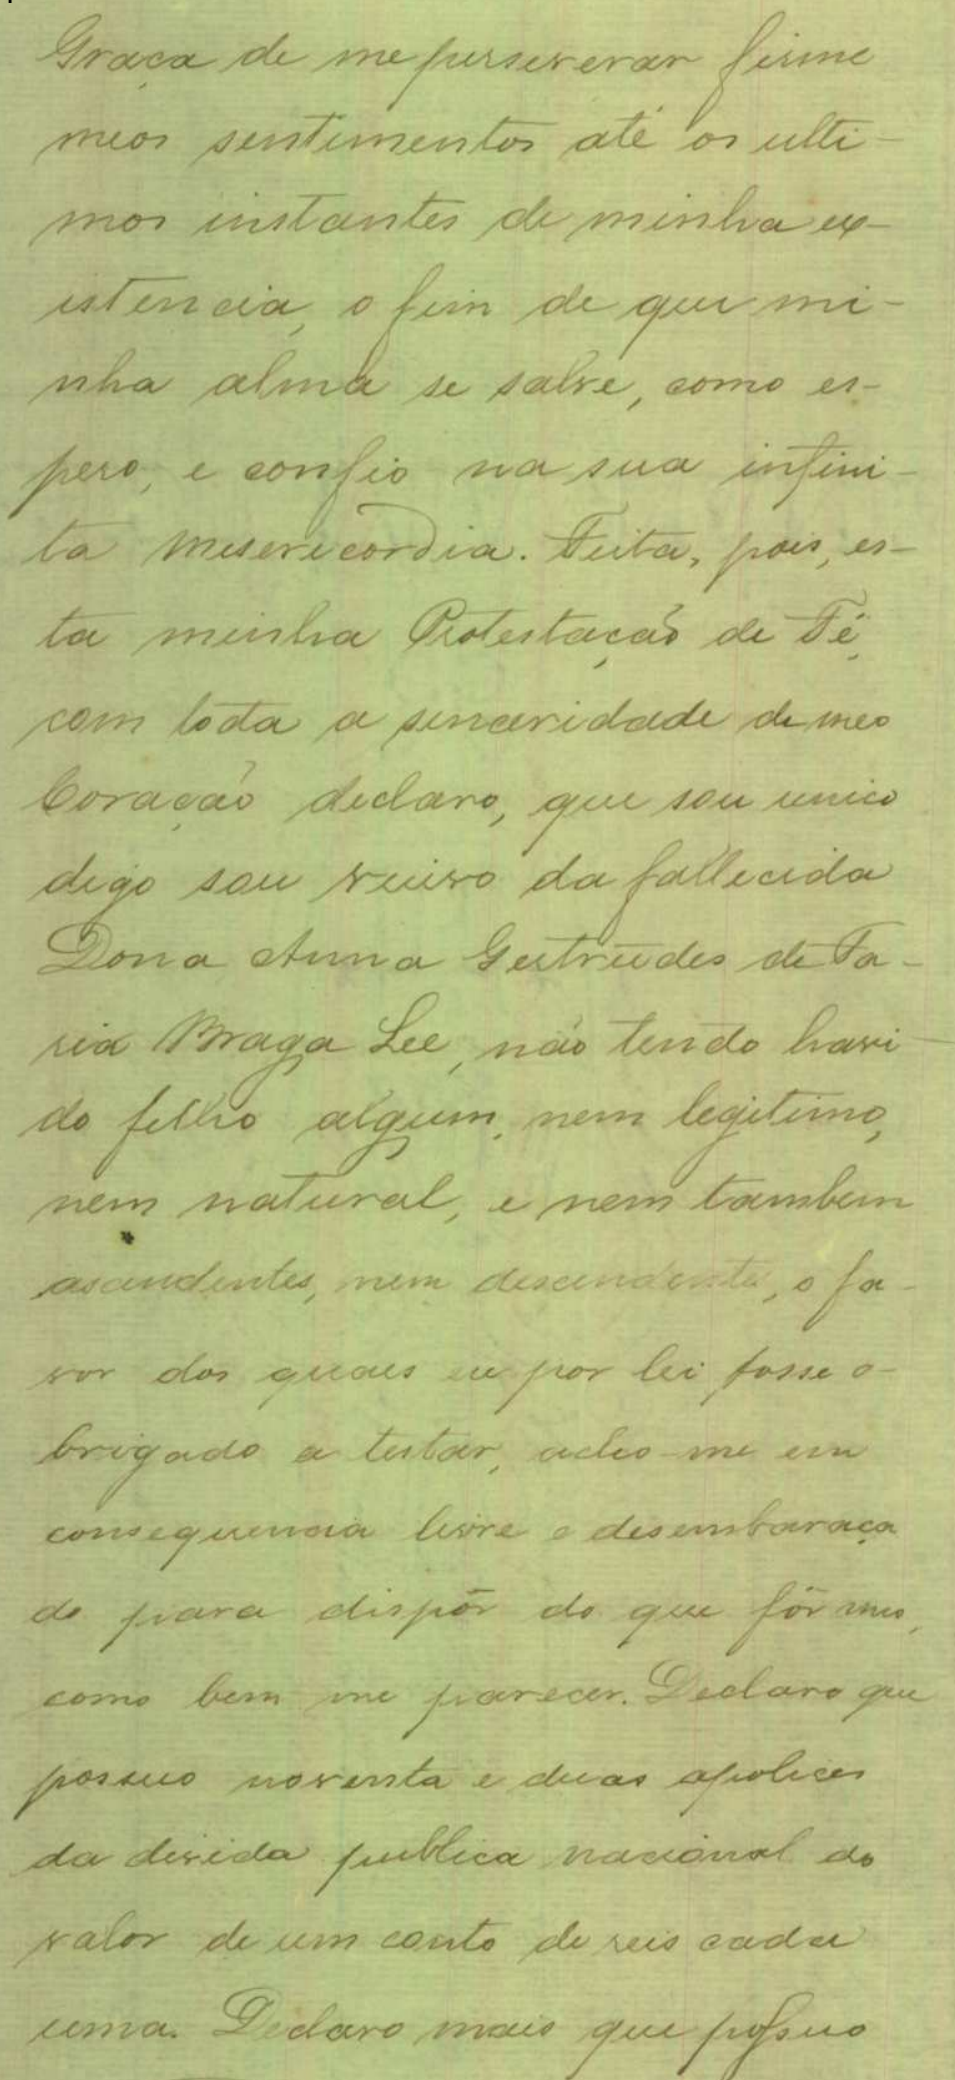 Graça de me perseverar firme
meos sentimentos até os ulti-
mos instantes de minha ex-
istencia, o fim de que mi-
nha alma se salve, como es-
pero, e confio na sua infini-
ta misericordia. Feita, pois, es-
ta minha Protestação de Fé,
com toda a sinceridade de meo
Coração declaro, que sou unico
digo sou viuvo da fallecida
Dona Anna Gertrudes de Fa-
ria Braga Lee, não tendo havi-
do filho algum, nem legitimo,
nem natural, e nem tambem
ascendentes, nem descendente, o fa-
vor dos quaes eu por lei fosse o-
brigado a testar, acho-me em
consequencia livre e desembaraça
do para dispôr do que fôr meo,
como bem me parecer. Declaro que
possuo noventa e duas apolices
da divida publica nacional do
valor de um conto de reis cada
uma. Declaro mais que possuo